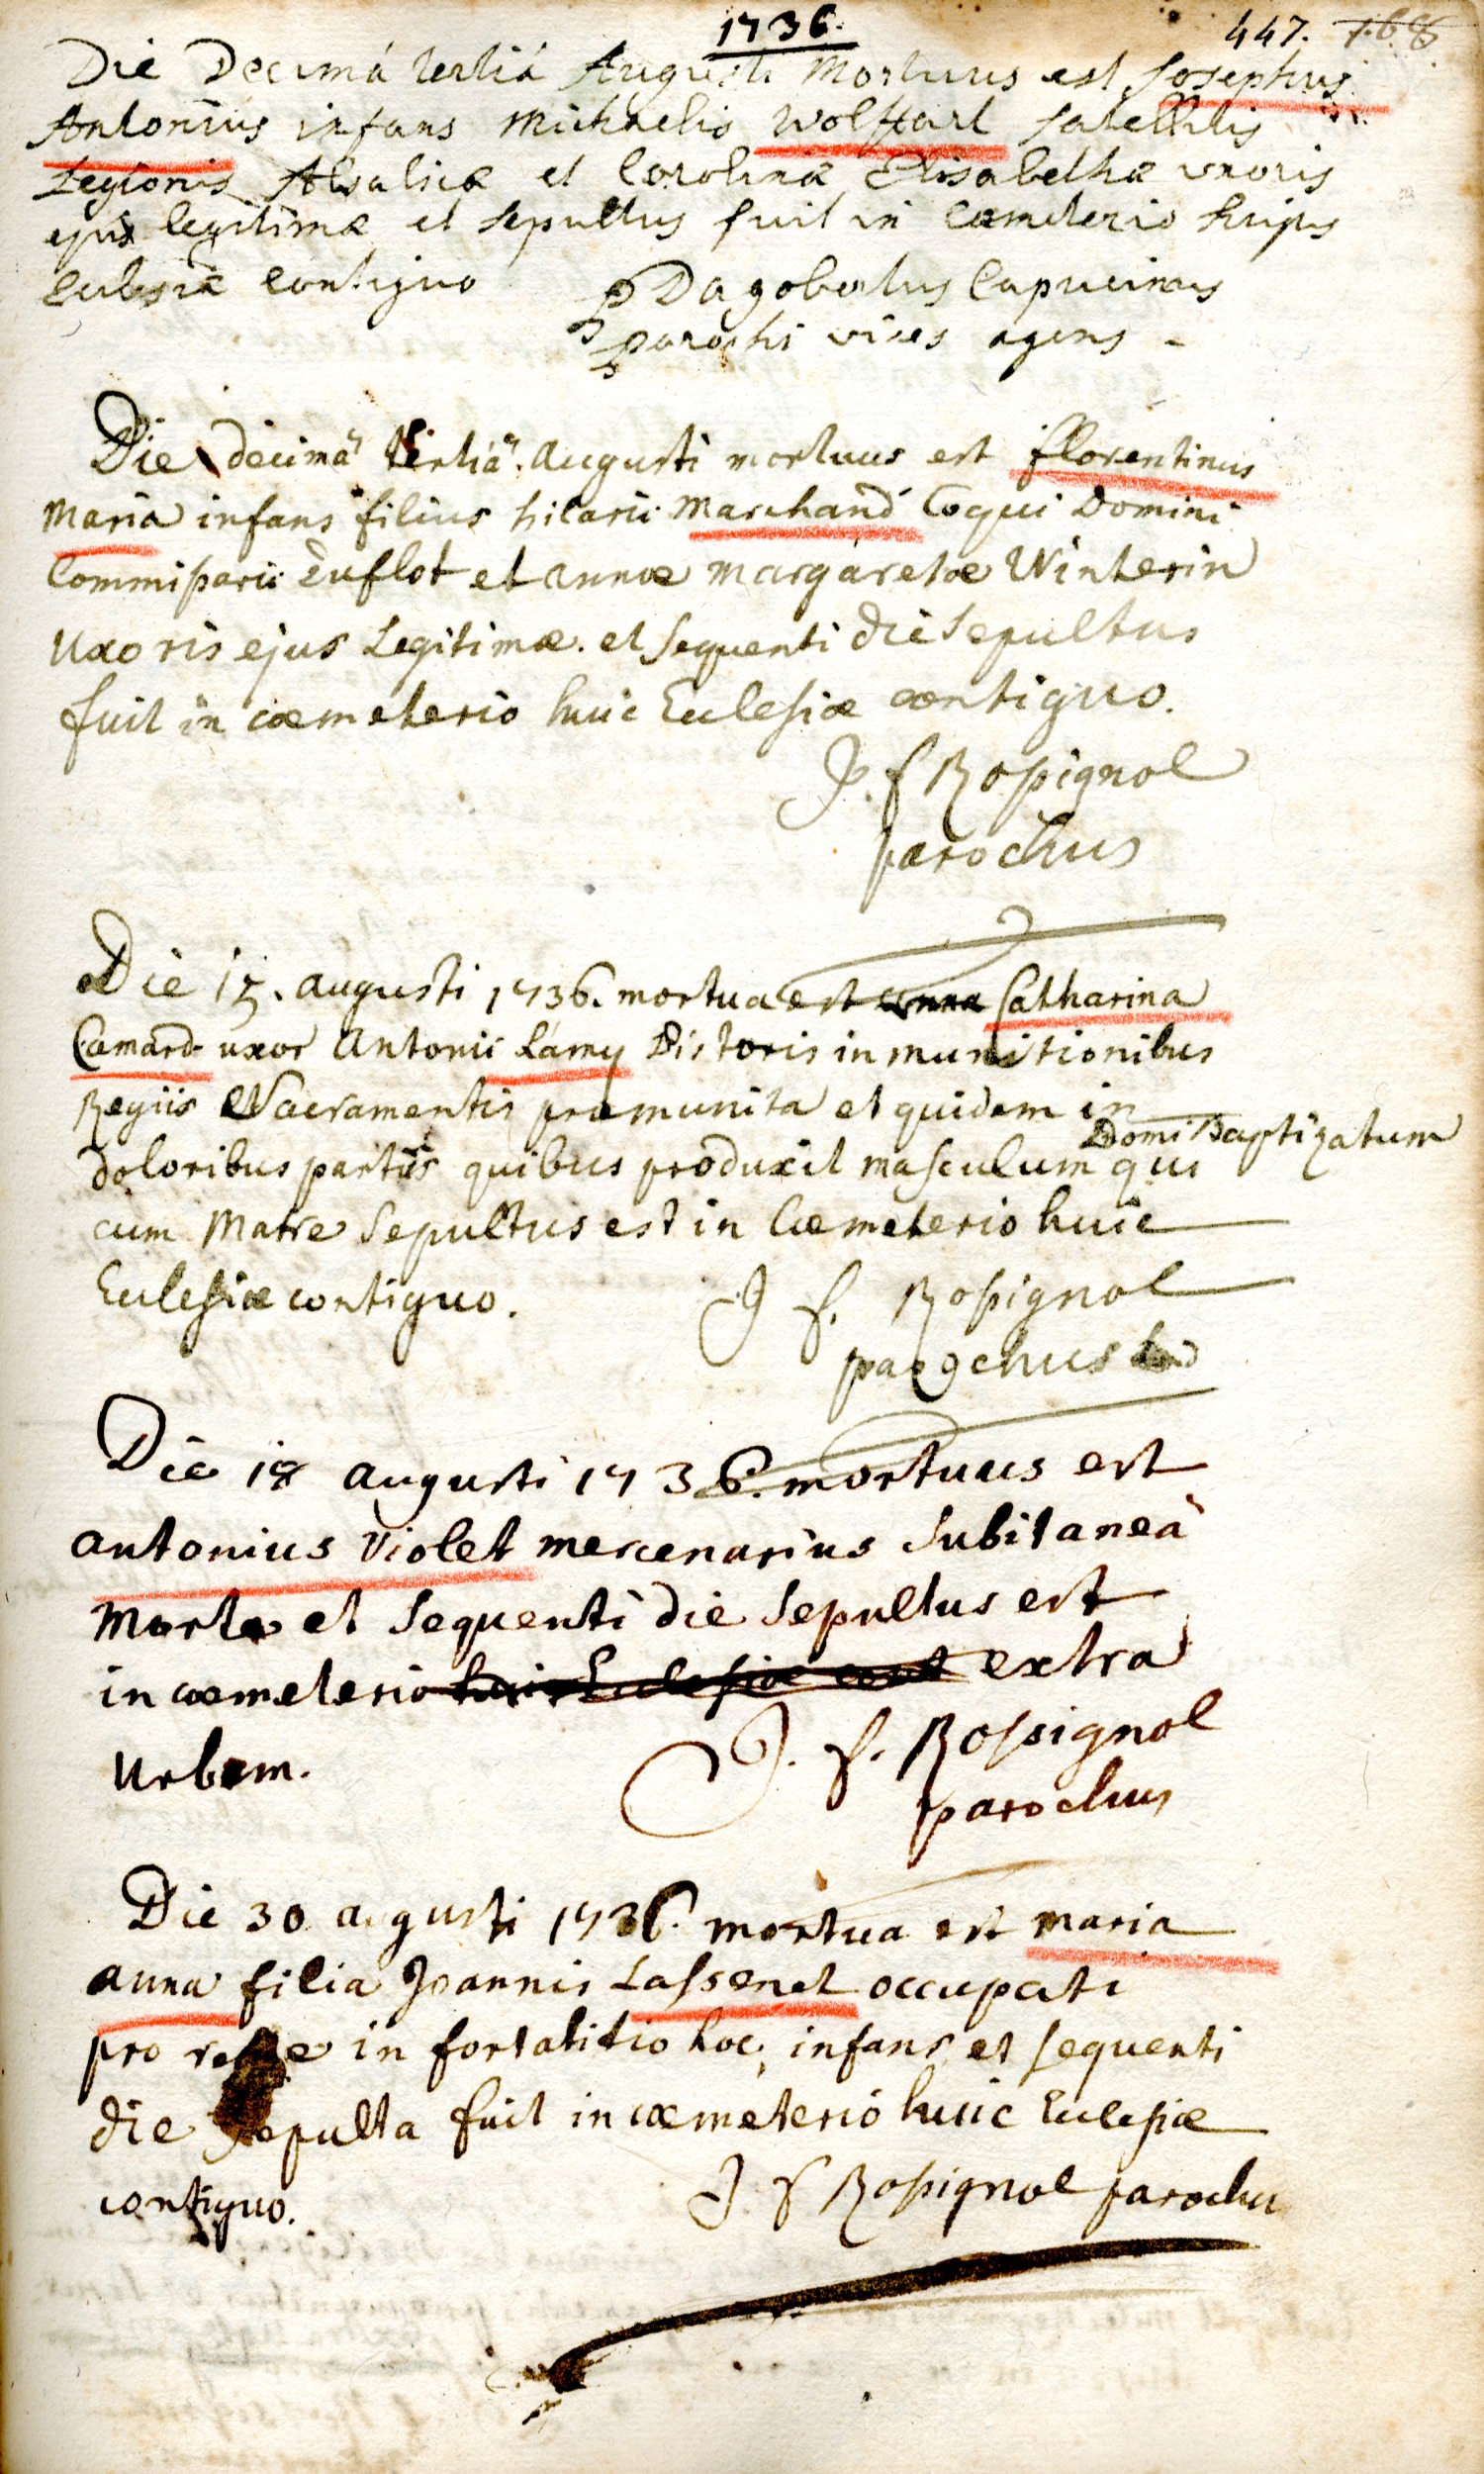 1736.
447. 168
Die Decimá tertiá Augusti Mortuus est Josephus
Antonius infans Michaelis Wolffart satellitis
Legionis Alsaticæ et Carolinæ Elisabethæ uxoris
ejus legitimæ et sepultus fuit in Cæmeterio hujus
Eclesiæ Contiguo P Dagobertus Capucinus
parochi vices agens -
Die decimâ tertiâ. augusti mortuus est florentinus
Maria infans filius hilarii Marchand Coqui Domini
Commissarii Duflot et annæ margaretæ Winterin
Uxoris ejus Legitimæ. et sequenti die sepultus
fuit in cœmeterio huic Eclesiæ contiguo.
J. f Rossignol
parochus
Die 15. augusti 1736. mortua est anna Catharina
Camard uxor Antonii Lámy Pistoris in munitionibus
Regiis Sacramentis præmunita et quidem in
Domi Baptizatum
doloribus partus quibus produxit masculum qui
cum Matre Sepultus est in Cœmeterio huic
Eclesiæ contiguo. J f. Rossignol
parochus
Die 18 augusti 1736. mortuus est
antonius Violet mercenarius Subitaneà
Morte et Sequenti die Sepultus est
in cœmeterio huic Eclesiæ cont extra
Urbem. J. f. Rossignol
parochus
Die 30 augusti 1736. mortua est maria
anna filia Joannis Lassenet occupati
pro in fortalitio hoc, infans et sequenti
die sepulta fuit in cœmeterio huic Eclesiæ
contiguo. J f Rossignol parochus